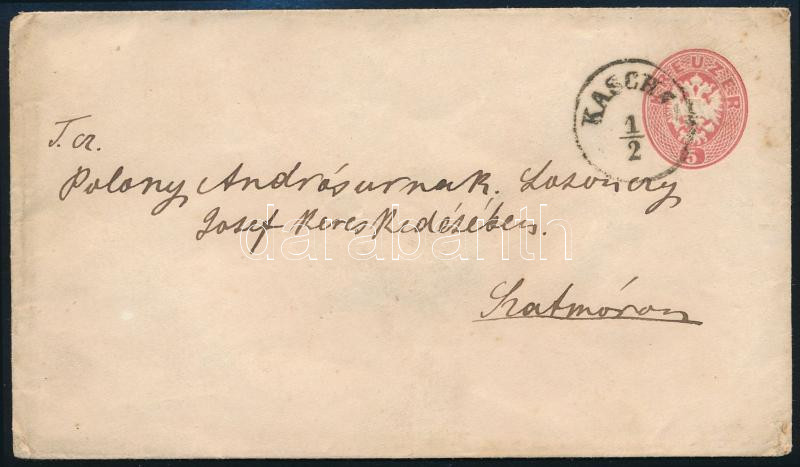 KREUZER
5
KASCHAU
1/2
T. cz.
Polony Andrásurnak. Losonczy
Josef Kereskedésében.
darabanth
Szatmáron